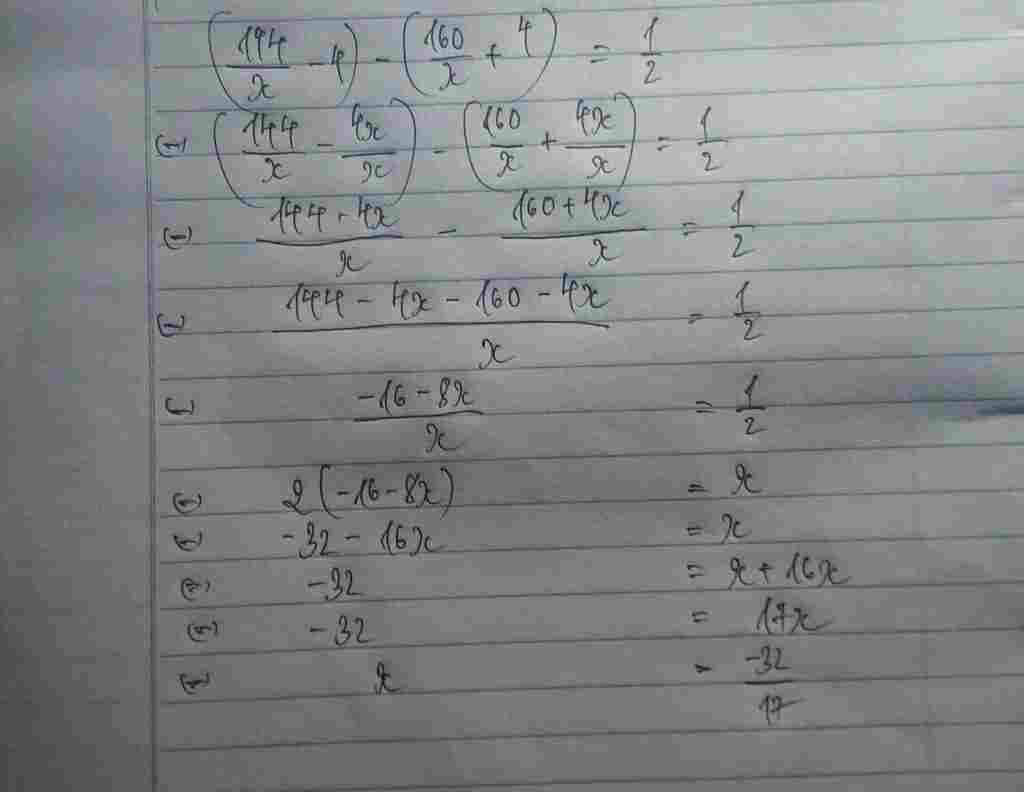 (144/x - 4) - (160/x + 4) = 1/2
(=) (144/x - 4x/x) - (160/x + 4x/x) = 1/2
(=) (144 + 4x)/x - (160 + 4x)/x = 1/2
(=) (144 - 4x - 160 - 4x)/x = 1/2
(=) (-16 - 8x)/x = 1/2
(=) 2(-16 - 8x) = x
(=) -32 - 16x = x
(=) -32 = x + 16x
(=) -32 = 17x
(=) x = -32/17